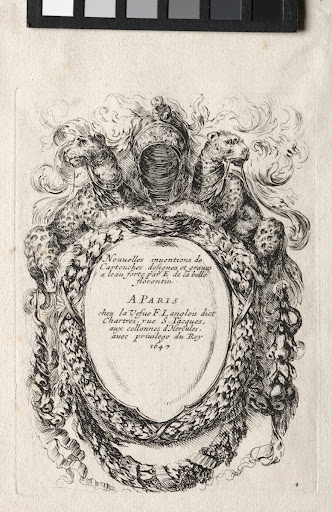 Nouuelles inuentions de
Cartouches designes et graues
a leau forte par E. de la belle
florentin
A PARIS
chez la Vefue F. L. anglois dict
Chartres, rue S. Iacques,
aux collonnes d'Hercules,
auec priuilege du Roy
1647